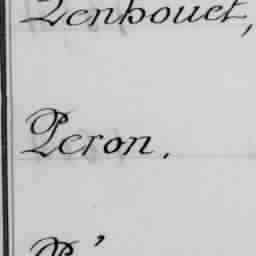 Penhouet,
Peron.